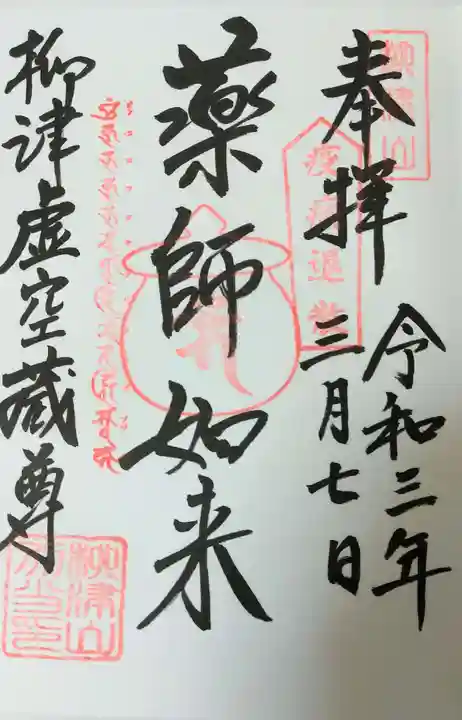 奉拝
令和三年
三月七日
柳津山
疫病退散
薬師如来
柳津虚空蔵尊